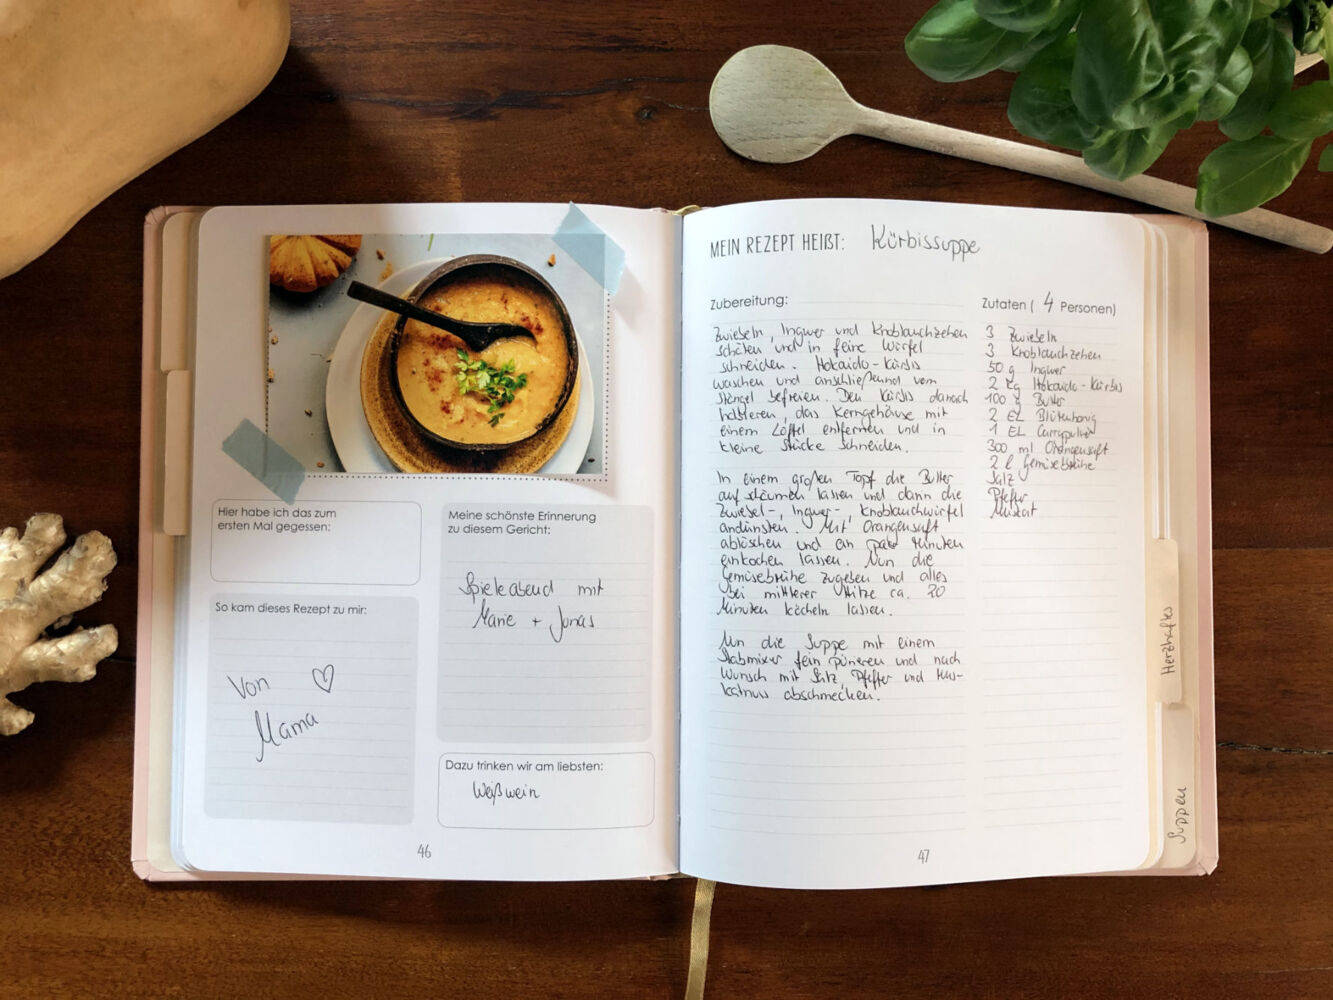 Hier habe ich das zum
ersten Mal gegessen:
So kam dieses Rezept zu mir:
Von ♡
Mama
Meine schönste Erinnerung
zu diesem Gericht:
Spieleabend mit
Marie + Jonas
Dazu trinken wir am liebsten:
Weißwein
46
MEIN REZEPT HEIẞT: Kürbissuppe
Zubereitung:
Zwiebeln, Ingwer und Knoblauchzehen
schälen und in feine Würfel
schneiden. Hokaido-Kürbis
waschen und anschließend vom
Stängel befreien. Den Kürbis danach
halbieren, das Kerngehäuse mit
einem Löffel entfernen und in
kleine Stücke schneiden.
In einem großen Topf die Butter
aufschäumen lassen und dann die
Zwiebel-, Ingwer-, Knoblauchwürfel
andünsten. Mit Orangensaft
ablöschen und ein paar Minuten
einkochen lassen. Nun die
Gemüsebrühe zugeben und alles
bei mittlerer Hitze ca. 20
Minuten köcheln lassen.
Nun die Suppe mit einem
Stabmixer fein pürieren und nach
Wunsch mit Salz, Pfeffer und Mus-
katnuss abschmecken.
Zutaten ( 4 Personen)
3 Zwiebeln
3 Knoblauchzehen
50 g Ingwer
2 kg Hokaido-Kürbis
100 g Butter
2 EL Blütenhonig
1 EL Currypulver
300 ml Orangensaft
2 l Gemüsebrühe
Salz
Pfeffer
Muskat
47
Herzhaftes
Suppen